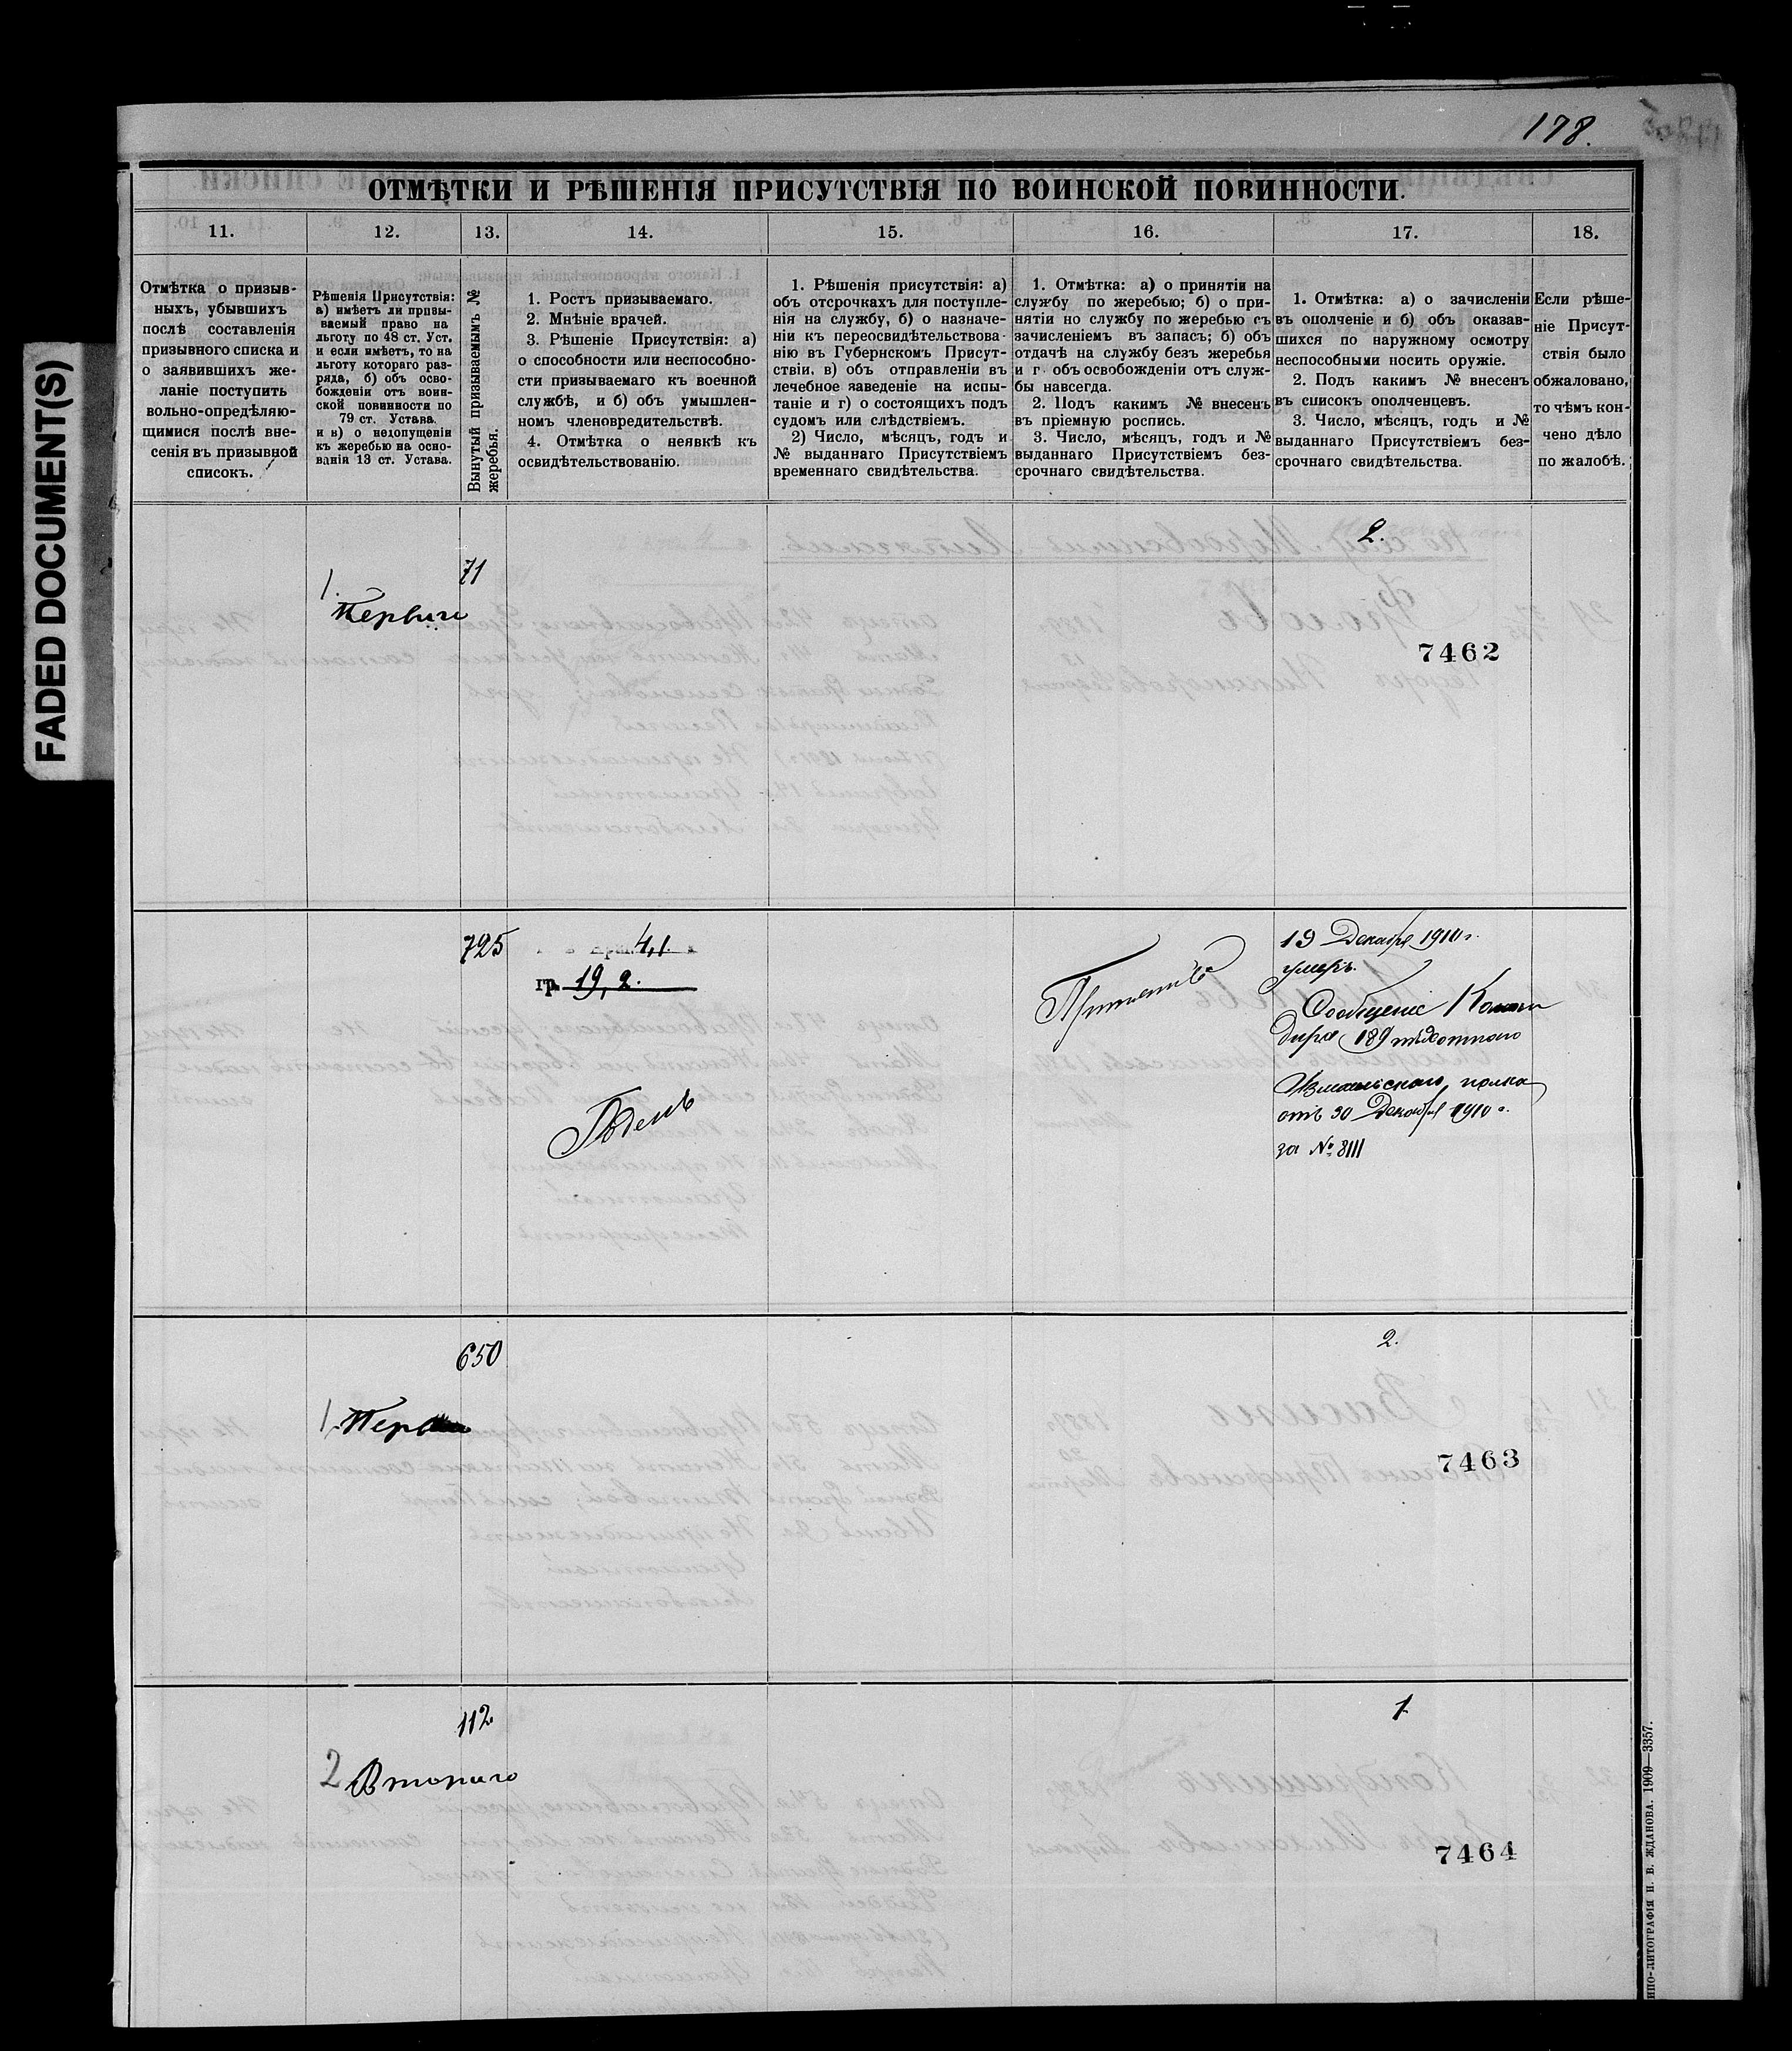 178.
FADED DOCUMENT(S)
ОТМѢТКИ И РѢШЕНІЯ ПРИСУТСТВІЯ ПО ВОИНСКОЙ ПОВИННОСТИ.
11.
12.
13.
14.
15.
16.
17.
18.
Отмѣтка о призыв-
ныхъ, убывшихъ
послѣ составленія
призывного списка и
о заявившихъ же-
ланіе поступить
вольно-опредѣляю-
щимися послѣ вне-
сенія въ призывной
списокъ.
Рѣшенія Присутствія:
а) имѣетъ ли призы-
ваемый право на
льготу по 48 ст. Уст.
и если имѣетъ, то на
льготу котораго раз-
ряда, б) объ осво-
божденіи отъ воин-
ской повинности по
79 ст. Устава.
и в) о недопущеніи
къ жеребью на осно-
ваніи 13 ст. Устава.
Вынутый призываемымъ №
жеребья.
1. Ростъ призываемаго.
2. Мнѣніе врачей.
3. Рѣшеніе Присутствія: а)
о способности или неспособно-
сти призываемаго къ военной
службѣ, и б) объ умышлен-
номъ членовредительствѣ.
4. Отмѣтка о неявкѣ къ
освидѣтельствованію.
1. Рѣшенія присутствія: а)
объ отсрочкахъ для поступле-
нія на службу, б) о назначе-
ніи къ переосвидѣтельствова-
нію въ Губернскомъ Присут-
ствіи, в) объ отправленіи въ
лечебное заведеніе на испы-
таніе и г) о состоящихъ подъ
судомъ или слѣдствіемъ.
2) Число, мѣсяцъ, годъ и
№ выданнаго Присутствіемъ
временнаго свидѣтельства.
1. Отмѣтка: а) о принятіи на
службу по жеребью; б) о при-
нятіи но службу по жеребью съ
зачисленіемъ въ запасъ; б) объ
отдачѣ на службу безъ жеребья
и г. объ освобожденіи отъ служ-
бы навсегда.
2. Подъ какимъ № внесенъ
въ пріемную роспись.
3. Число, мѣсяцъ, годъ и №
выданнаго Присутствіемъ без-
срочнаго свидѣтельства.
1. Отмѣтка: а) о зачисленіи
въ ополченіе и б) объ оказав-
шихся по наружному осмотру
неспособными носить оружіе.
2. Подъ какимъ № внесенъ
въ списокъ ополченцевъ.
3. Число, мѣсяцъ, годъ и №
выданнаго Присутствіемъ без-
срочнаго свидѣтельства.
Если рѣше-
ніе Присут-
ствія было
обжаловано,
то чѣмъ кон-
чено дѣло
по жалобѣ.
1.
Перваго
71
2.
7462
725
4,1
гр. 19,2.
Годенъ
Принятъ
19 Декабря 1910 г.
умеръ.
Сообщеніе Коман
дира 189 пѣхотнаго
Измаильскаго полка
отъ 30 Декабря 1910 г.
за № 8111
650
1.
2.
7463
112
2 Втораго
1
7464
ИПО-ЛИТОГРАФІЯ Н. В. ЖДАНОВА. 1909—3357.